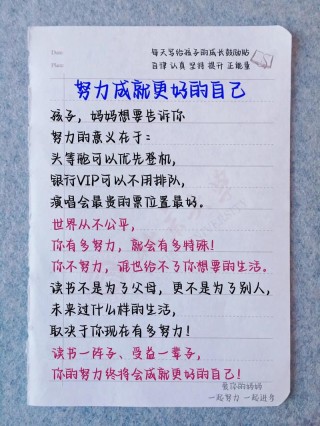 Date:
每天写给孩子的成长鼓励贴
Place:
自律 认真 坚持 提升 正能量
努力成就更好的自己
孩子，妈妈想要告诉你
努力的意义在于：
头等舱可以优先登机，
银行VIP可以不用排队，
演唱会最贵的票位置最好。
世界从不公平，
你有多努力，就会有多特殊！
你不努力，谁也给不了你想要的生活。
读书不是为了父母，更不是为了别人，
未来过什么样的生活，
取决于你现在有多努力！
读书一阵子、受益一辈子，
你的努力终将会成就更好的自己！
爱你的妈妈
一起努力 一起进步